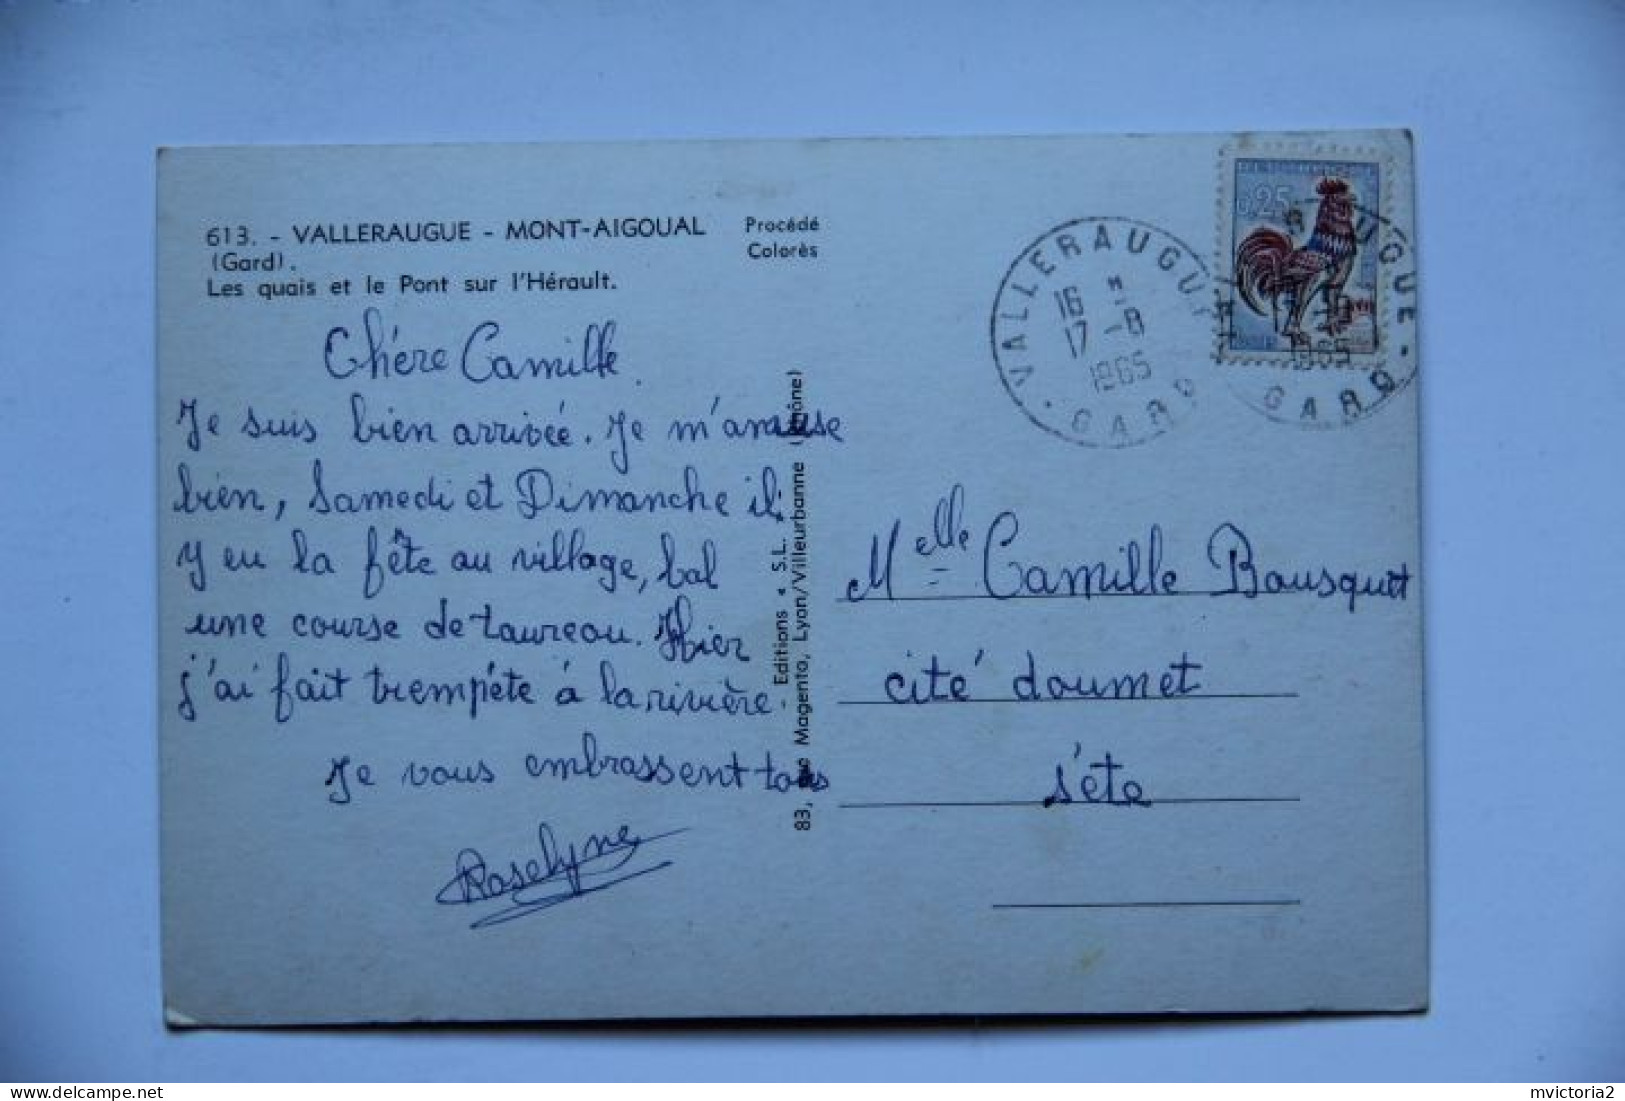 613. - VALLERAUGUE - MONT-AIGOUAL
(Gard).
Les quais et le Pont sur l'Hérault.
Procédé
Colorès
Chére Camille
Je suis bien arrivée. Je m'amuse
bien, Samedi et Dimanche il
y eu la fête au village, bal
une course de taureau. Hier
j'ai fait trempéte á la rivière.
Je vous embrassent tous
Roselyne
- Editions « S.L. »
83, Magento, Lyon/Villeurbanne (Rhône)
0,25
VALLERAUGUE
16 H
17 -8
1965
GARD
1965
GARD
Melle Camille Bousquet
cité doumet
séte
delcampe.net
mvictoria2